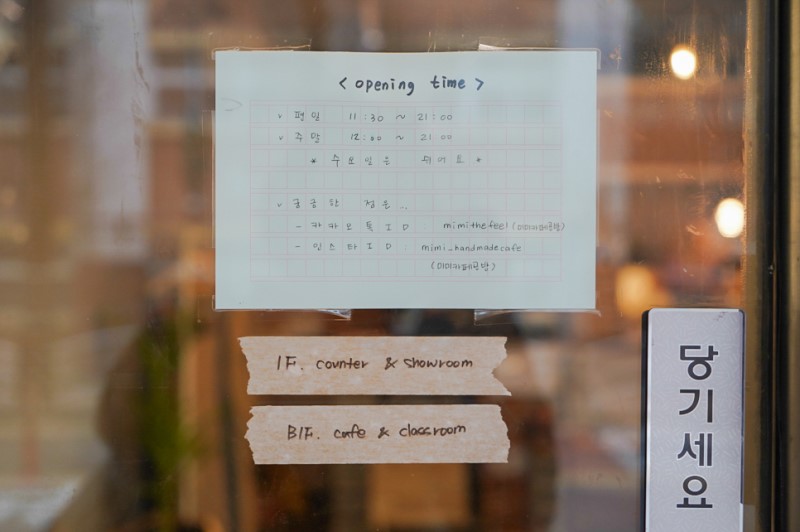 < opening time >
v 평일 11:30 ~ 21:00
v 주말 12:00 ~ 21:00
* 수요일은 쉬어요 *
v 궁금한 점은..
- 카카오톡 ID mimithefeel (미미카페공방)
- 인스타 ID : mimi_handmadecafe
(미미카페공방)
1F. counter & showroom
B1F. cafe & classroom
당기세요